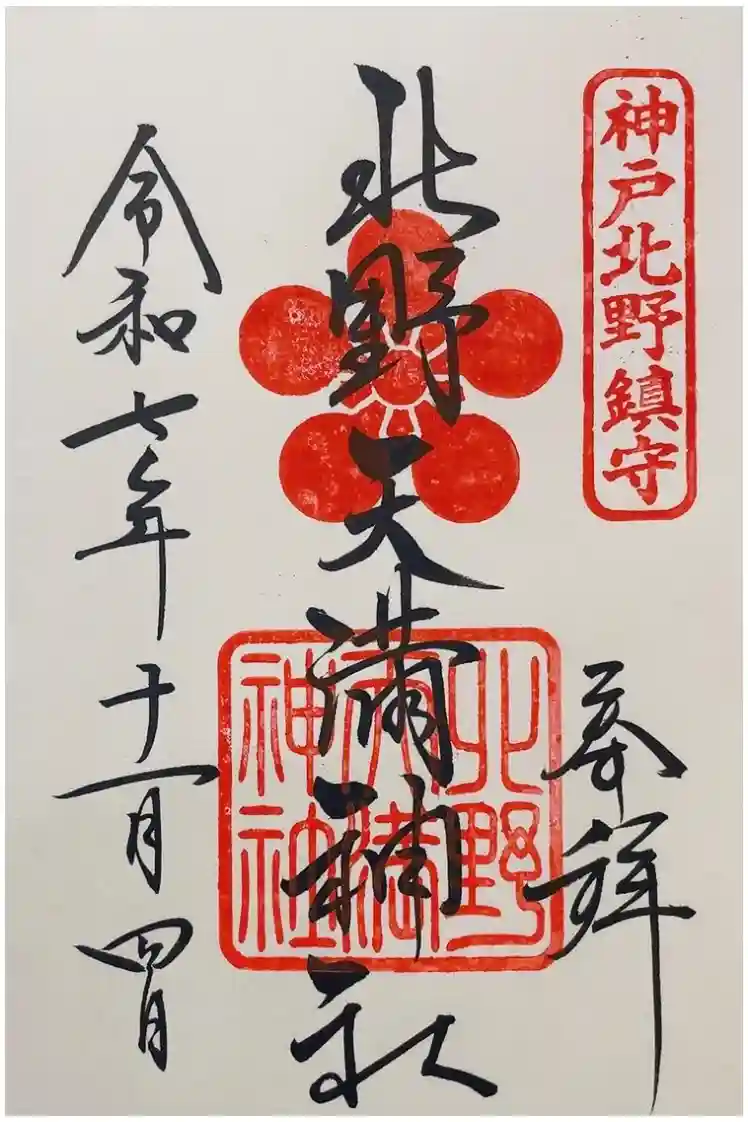 神戸北野鎮守
奉拝
北野天満神社
北野
天満
神社
令和七年十一月四日